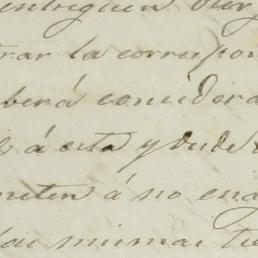 entreguen
rar la correspon
berá considera
á esta y dude
meten á no ena
las mismas tie